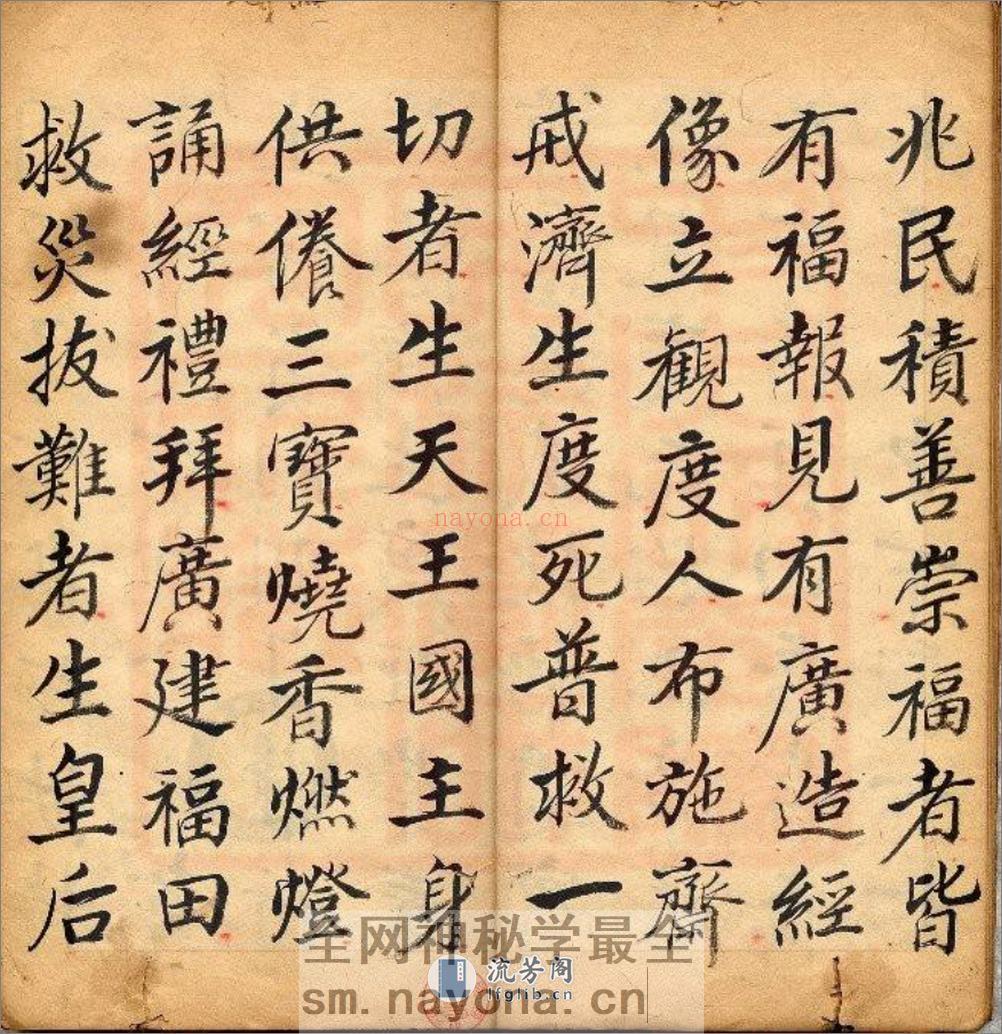 兆民積善崇福者皆
有福報見有廣造經
像立觀度人布施齋
戒濟生度死普救一
切者生天王國主身
供養三寶燒香燃燈
誦經禮拜廣建福田
救災拔難者生皇后
nayona.cn
全网神秘学最全
流芳阁
lfglib.cn
sm.nayona.cn